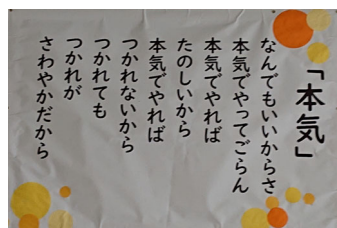 「本気」
なんでもいいからさ
本気でやってごらん
本気でやれば
たのしいから
本気でやれば
つかれないから
つかれても
つかれが
さわやかだから